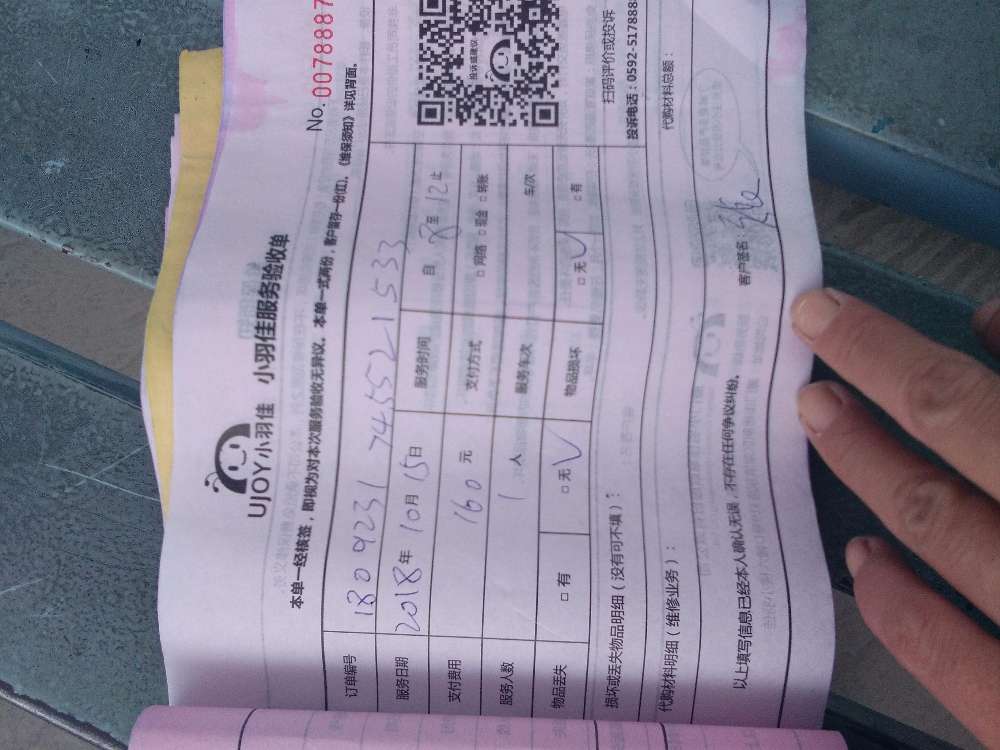 No. 0078887
UJOY小羽佳 小羽佳服务验收单
本单一经核签，即视为对本次服务验收无异议。本单一式两份，客户留存一份(红)。《维保须知》详见背面。
订单编号 18092317455521533
服务日期 2018年10月15日 服务时间 自 8 至 12 止
支付费用 160 元 支付方式 □网络 □现金 □转账
服务人数 1 人 服务车次 车/次
物品丢失 □有 □无 √ 物品损坏 □无 √ □有
投诉或建议
扫码评价或投诉
投诉电话：0592-5178888
损坏或丢失物品明细（没有可不填）：
代购材料明细（维修业务）： 代购材料总额：
以上填写信息已经本人确认无误，不存在任何争议纠纷。 客户签名：